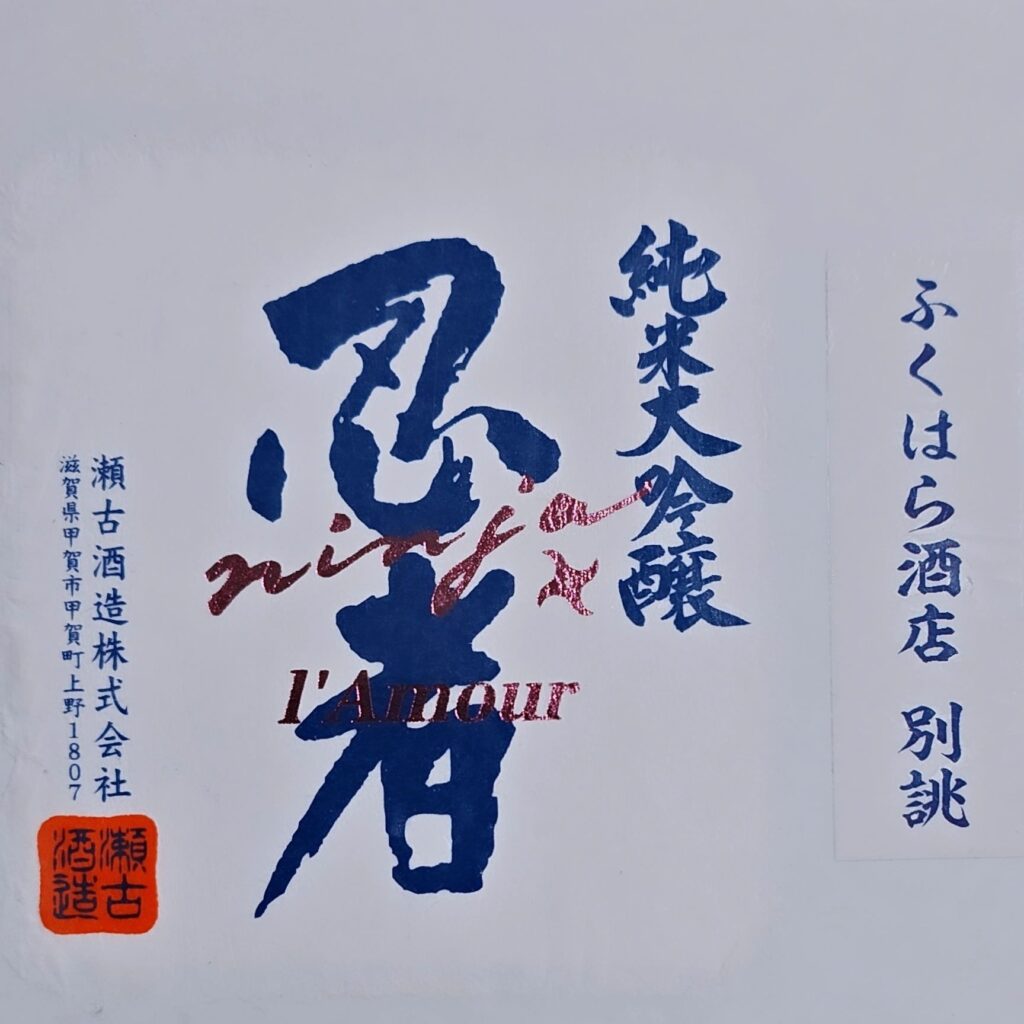 ふくはら酒店 別誂
純米大吟醸
忍者
ninja
l'Amour
瀬古酒造株式会社
滋賀県甲賀市甲賀町上野1807
瀬古
酒造